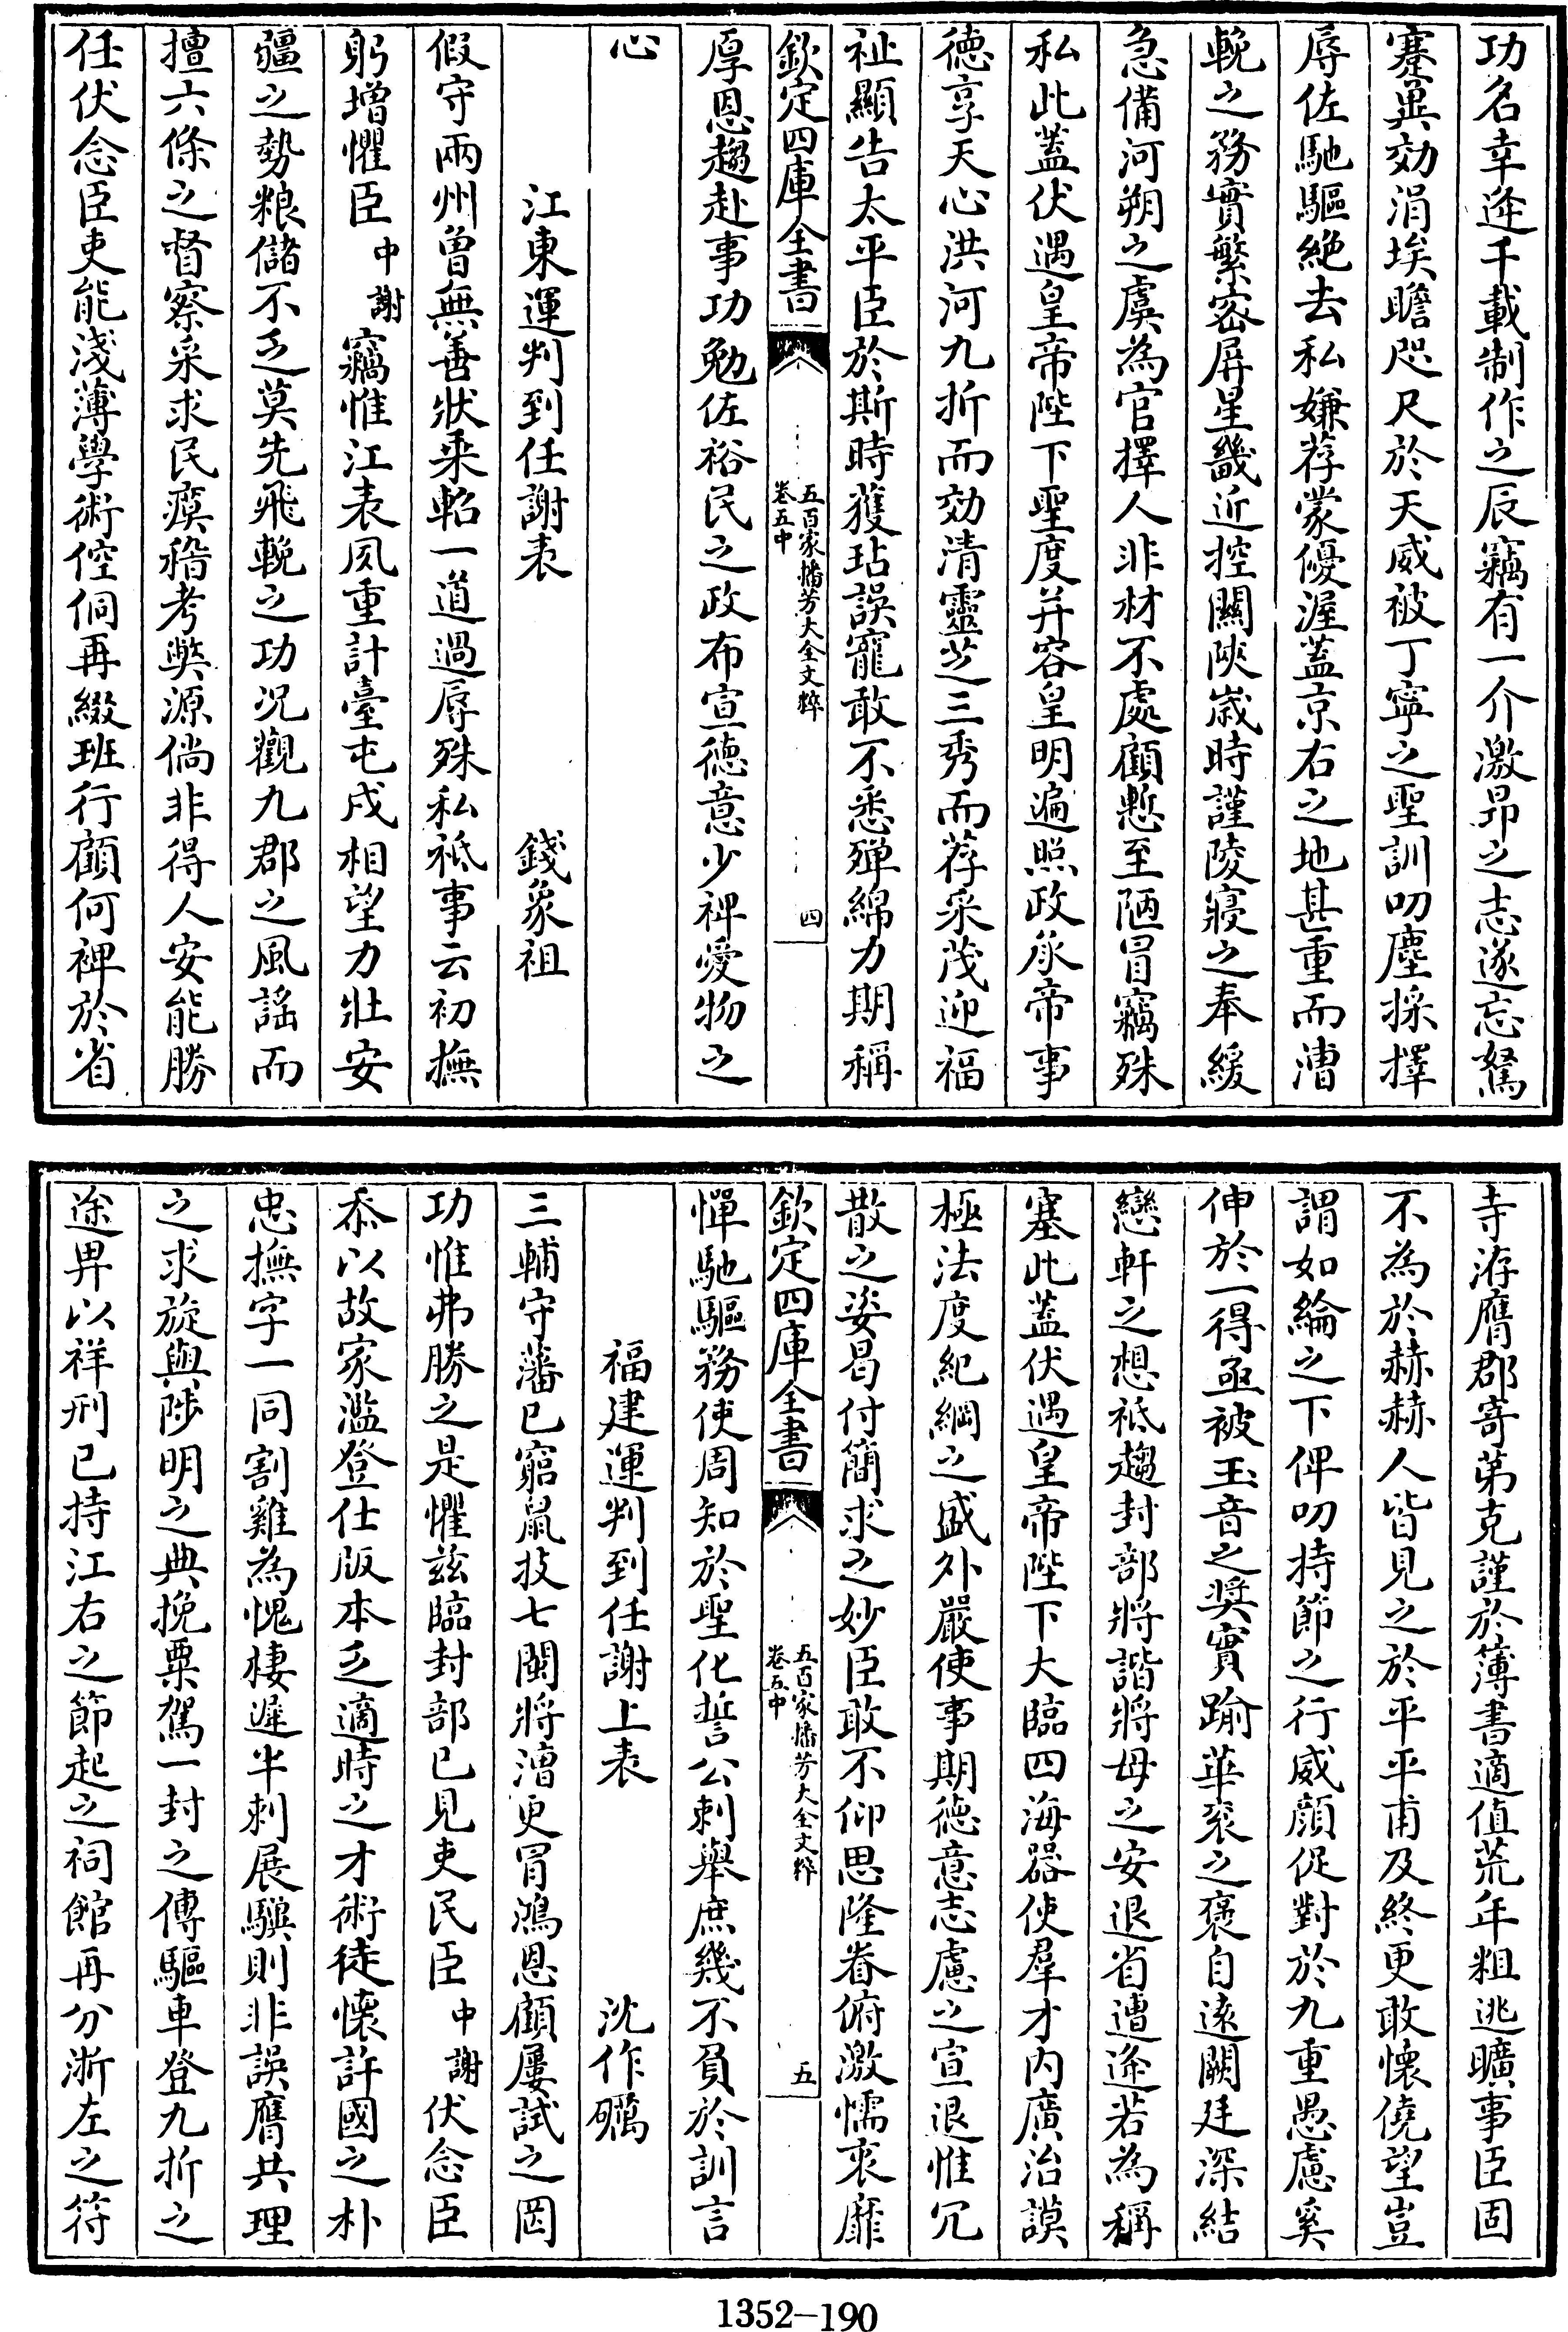 功名幸逢千載制作之辰竊有一介激昂之志遂忘駑
蹇冀効涓埃瞻咫尺於天威被丁寧之聖訓叨塵採擇
辱佐馳驅絶去私嫌荐蒙優渥蓋京右之地甚重而漕
輓之務實繁密屏星畿近控關陜嵗時謹陵寢之奉緩
急備河朔之虞為官擇人非材不處顧慙至陋冒竊殊
私此蓋伏遇皇帝陛下聖度并容皇明遍照政承帝事
德享天心洪河九折而効清靈芝三秀而荐采茂迎福
祉顯告太平臣於斯時獲玷誤寵敢不悉殫綿力期稱
欽定四庫全書
五百家播芳大全文粹
卷五中
四
厚恩趨赴事功勉佐裕民之政布宣德意少裨愛物之
心
江東運判到任謝表
錢象祖
假守兩州曾無善狀乘軺一道過辱殊私祗事云初撫
躬增懼臣中謝竊惟江表夙重計臺屯戍相望力壯安
疆之勢粮儲不乏莫先飛輓之功况觀九郡之風謡而
擅六條之督察采求民瘼稽考弊源倘非得人安能勝
任伏念臣吏能淺薄學術倥侗再綴班行顧何裨於省
寺洊膺郡寄第克謹於簿書適值荒年粗逃曠事臣固
不為於赫赫人皆見之於平平甫及終更敢懷僥望豈
謂如綸之下俾叨持節之行威顔促對於九重愚慮奚
伸於一得亟被玉音之奬實踰華衮之褒自逺闕廷深結
戀軒之想祗趨封部將諧將母之安退省遭逢若為稱
塞此蓋伏遇皇帝陛下大臨四海器使羣才内廣治謨
極法度紀綱之盛外嚴使事期徳意志慮之宣退惟冗
散之姿曷付簡求之妙臣敢不仰思隆眷俯激懦衷靡
欽定四庫全書
五百家播芳大全文粹
卷五中
五
憚馳驅務使周知於聖化誓公刺舉庶幾不負於訓言
福建運判到任謝上表
沈作礪
三輔守藩已窮鼠技七閩將漕更冐鴻恩顧屢試之罔
功惟弗勝之是懼兹臨封部已見吏民臣中謝伏念臣
忝以故家濫登仕版本乏適時之才術徒懷許國之朴
忠撫字一同割雞為愧棲遲半刺展驥則非誤膺共理
之求旋與陟明之典挽粟駕一封之傳驅車登九折之
途畀以祥刑已持江右之節起之祠館再分浙左之符
1352—190